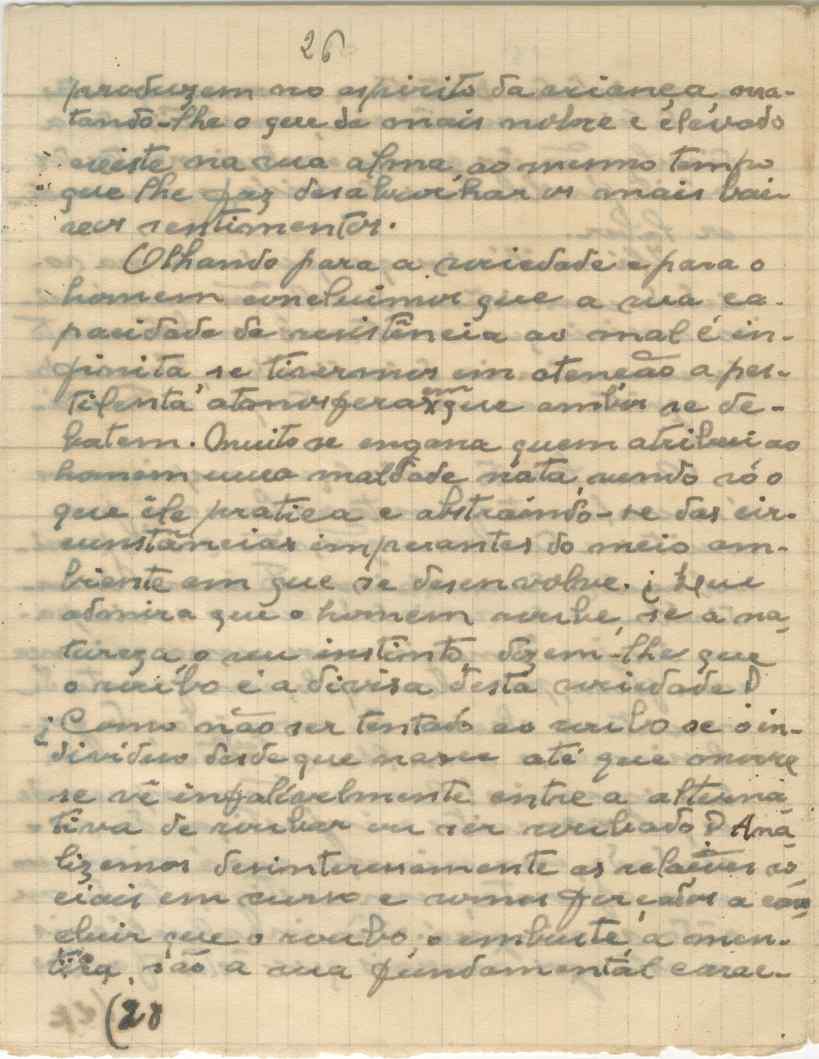 26
produzem no espirito da criança, ma-
tando-lhe o que de mais nobre e elevado
existe na sua alma, ao mesmo tempo
que lhe faz desabrochar os mais bai-
xos sentimentos.
Olhando para a sociedade e para o
homem concluimos que a sua ca-
pacidade de resistência ao mal é in-
finita se tivermos em atenção a pes-
tilenta atmosfera em que ambos se de-
batem. Muito se engana quem atribui ao
homem uma maldade nata, vendo só o
que êle pratica e abstraindo-se das cir-
cunstâncias imperantes do meio am-
biente em que se desenvolve. ¿Que
admira que o homem roube, se a na-
tureza, o seu instinto, dizem-lhe que
o roubo é a divisa desta sociedade?
¿Como não ser tentado ao roubo se o in-
divíduo desde que nasce até que morre
se vê infalivelmente entre a alterna-
tiva de roubar ou ser roubado? Ana-
lizemos desinteressamente as relações so-
ciais em curso e somos forçados a con-
cluir que o roubo, o embuste, a men-
tira, são a sua fundamental carac-
(28